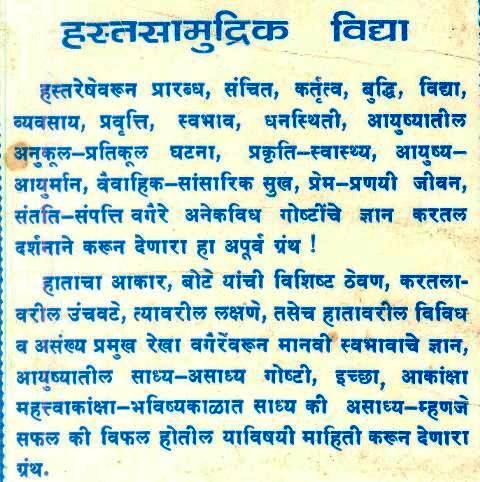 हस्तसामुद्रिक विद्या
हस्तरेषेवरून प्रारब्ध, संचित, कर्तृत्व, बुद्धि, विद्या,
व्यवसाय, प्रवृत्ति, स्वभाव, धनस्थिती, आयुष्यातील
अनुकूल–प्रतिकूल घटना, प्रकृति–स्वास्थ्य, आयुष्य–
आयुर्मान, वैवाहिक–सांसारिक सुख, प्रेम–प्रणयी जीवन,
संतति–संपत्ति वगैरे अनेकविध गोष्टींचे ज्ञान करतल
दर्शनाने करून देणारा हा अपूर्व ग्रंथ !
हाताचा आकार, बोटे यांची विशिष्ट ठेवण, करतला-
वरील उंचवटे, त्यावरील लक्षणे, तसेच हातावरील विविध
व असंख्य प्रमुख रेखा वगैरेंवरून मानवी स्वभावाचे ज्ञान,
आयुष्यातील साध्य–असाध्य गोष्टी, इच्छा, आकांक्षा
महत्त्वाकांक्षा–भविष्यकाळात साध्य की असाध्य–म्हणजे
सफल की विफल होतील याविषयी माहिती करून देणारा
ग्रंथ.